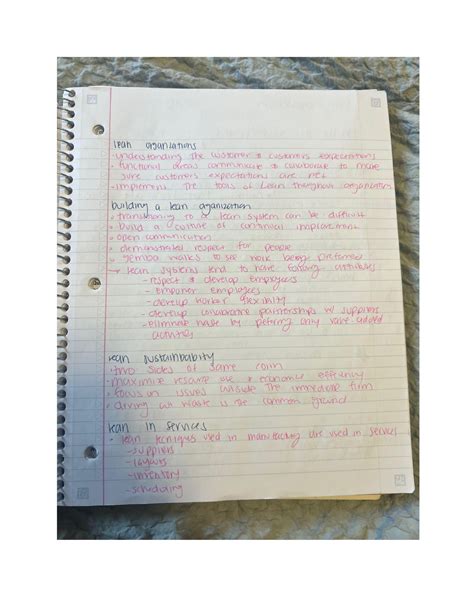 lean organizations
· understanding the customer & customers expectations
· functional areas communicate & collaborate to make
sure customers expectations are met
· implement the tools of lean throughout organization
building a lean organization
· transitioning to a lean system can be difficult
· build a culture of continual improvement
· open communication
· demonstrated respect for people
· gemba walks to see work being preformed
→ lean systems tend to have following attributes
- respect & develop employees
- empower employees
- develop worker flexibility
- develop collaborative partnerships w/ suppliers
- eliminate waste by performing only value added
activities
lean sustainability
· two sides of same coin
· maximize resource use & economic efficiency
· focus on issues outside the immediate firm
· driving out waste is the common ground
lean in services
· lean techniques used in manufacturing are used in services
- suppliers
- layouts
- inventory
- scheduling